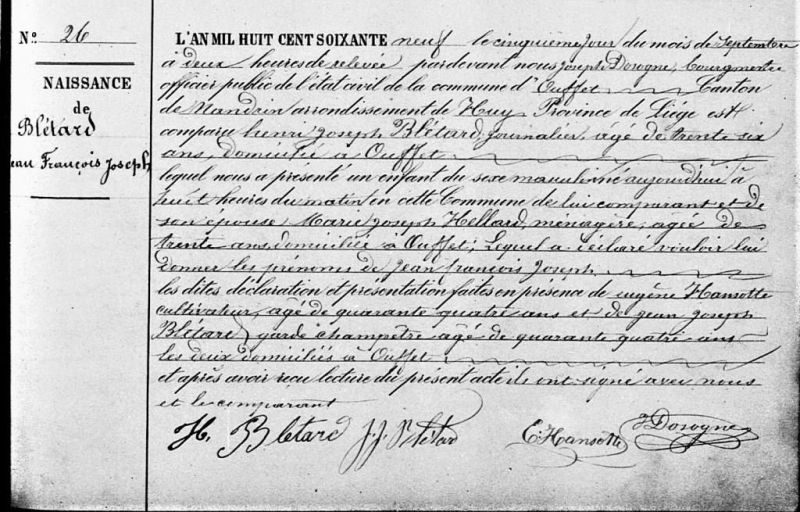 N.º 26
NAISSANCE
de
Blétard
ean François Joseph
L'AN MIL HUIT CENT SOIXANTE neuf le cinquième jour du mois de Septembre
à deux heures de relevée pardevant nous Joseph Dorogne, bourgmestre
officier public de l'état civil de la commune d'Ouffet Canton
de Mandrin arrondissement de Huy Province de Liége est
comparu henri Joseph Blétard, journalier, agé de trente six
ans, domicilié à Ouffet
lequel nous a présenté un enfant du sexe masculin né aujourd'hui à
huit heures du matin en cette Commune de lui comparant et de
son épouse Marie Joseph Hellard, ménagère, agée de
trente ans domiciliée à Ouffet; Lequel a déclaré vouloir lui
donner les prénoms de Jean françois Joseph
les dites déclaration et présentation faites en présence de eugène Hansotte
cultivateur, agé de quarante quatre ans et de jean Joseph
Blétard garde champêtre agé de quarante quatre ans
les deux domiciliés à Ouffet
et après avoir reçu lecture du présent acte ils ont signé avec nous
et le comparant
H. Blétard J. J. Blétard E. Hansotte J Dorogne